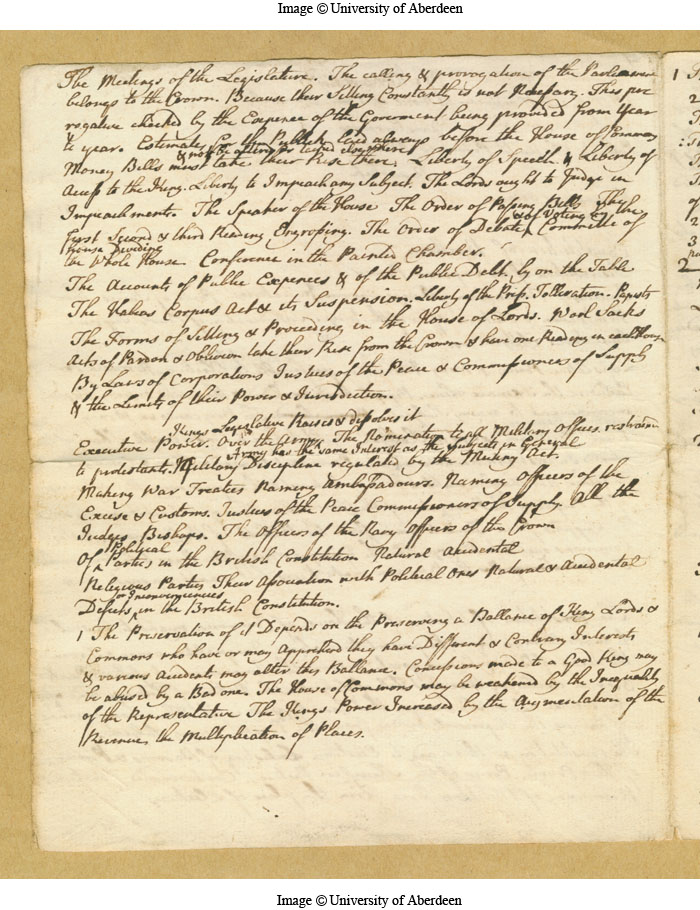 Image © University of Aberdeen
The Meetings of the Legislature. The calling & prorogation of the Parliament
belongs to the Crown. Because their Sitting Constantly is not Necessary. This pre
rogative checked by the Expence of the Goverment being provided from Year
to year. Estimates for the Publick laid always before the House of Commons
& not be altered or taxed elsewhere
Money Bills must take their Rise there. Liberty of Speech & Liberty of
Access to the King. Liberty to Impeach any Subject. The Lords ought to Judge in
Impeachments. The Speaker of the House The Order of Passing Bills The
& of Voting &
First Second & third Reading Engrossing. The Order of Debate Committee of the
House Dividing
the Whole House Conference in the Painted Chamber.
The Accounts of Public Expences & of the Public Debt ly on the Table
The Habeas Corpus Act & its Suspension. Liberty of the Press. Tolleration. Papists
The Forms of Sitting & Proceeding in the House of Lords. Wool Sacks
Acts of Pardon & Oblivion take their Rise from the Crown & have one Reading in each House
By Laws of Corporations Justices of the Peace & Commissioners of Supply
& the Limits of their Power & Jurisdiction.
Kings Legislative Raises & disolves it
Executive Power. Over the Army The Nomination to all Military Offices. restrained
Army has the same Interest as the Subjects in General
to protestants. Military Discipline regulated by the Mutiny Act.
Making War Treaties Naming Ambassadours. Naming Officers of the
Excise & Customs. Justices of the Peace Commissioners of Supply. All the
Judges Bishops. The Officers of the Navy Officers of the Crown
Political
Of Parties in the British Constitution Natural Accidental
Religious Parties Their Association with Political Ones Natural & Accidental
or Inconveniencies
Defects in the British Constitution.
1 The Preservation of it Depends on the Preserving a Ballance of King Lords &
Commons who have or may Apprehend they have Different & Contrary Interests
& various Accidents may alter this Ballance. Concessions made to a Good King may
be abused by a Bad one. The House of Commons may be weakened by the Inequality
of the Representative The Kings Power Increased by the Augmentation of the
Revenue, the Multiplication of Places.
1
2
3
2
Image © University of Aberdeen